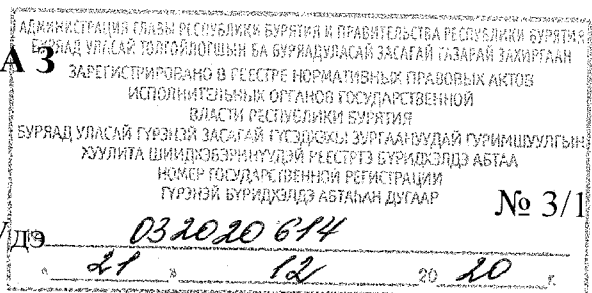 АДМИНИСТРАЦИЯ ГЛАВЫ РЕСПУБЛИКИ БУРЯТИЯ И ПРАВИТЕЛЬСТВА РЕСПУБЛИКИ БУРЯТИЯ
БУРЯАД УЛАСАЙ ТОЛГОЙЛОГШЫН БА БУРЯАД УЛАСАЙ ЗАСАГАЙ ГАЗАРАЙ ЗАХИРГААН
А З
ЗАРЕГИСТРИРОВАНО В РЕЕСТРЕ НОРМАТИВНЫХ ПРАВОВЫХ АКТОВ
ИСПОЛНИТЕЛЬНЫХ ОРГАНОВ ГОСУДАРСТВЕННОЙ
ВЛАСТИ РЕСПУБЛИКИ БУРЯТИЯ
БУРЯАД УЛАСАЙ ГҮРЭНЭЙ ЗАСАГАЙ ГҮЙСЭДХЭХЫ ЗУРГААНУУДАЙ ГУРИМШУУЛГЫН
ХУУЛИТА ШИИДХЭБЭРИНҮҮДЭЙ РЕЕСТРТЭ БҮРИДХЭЛДЭ АБТАА
НОМЕР ГОСУДАРСТВЕННОЙ РЕГИСТРАЦИИ
ГҮРЭНЭЙ БҮРИДХЭЛДЭ АБТАҺАН ДУГААР
№ 3/1
дэ 032020614
" 21 " 12 20 20 г.